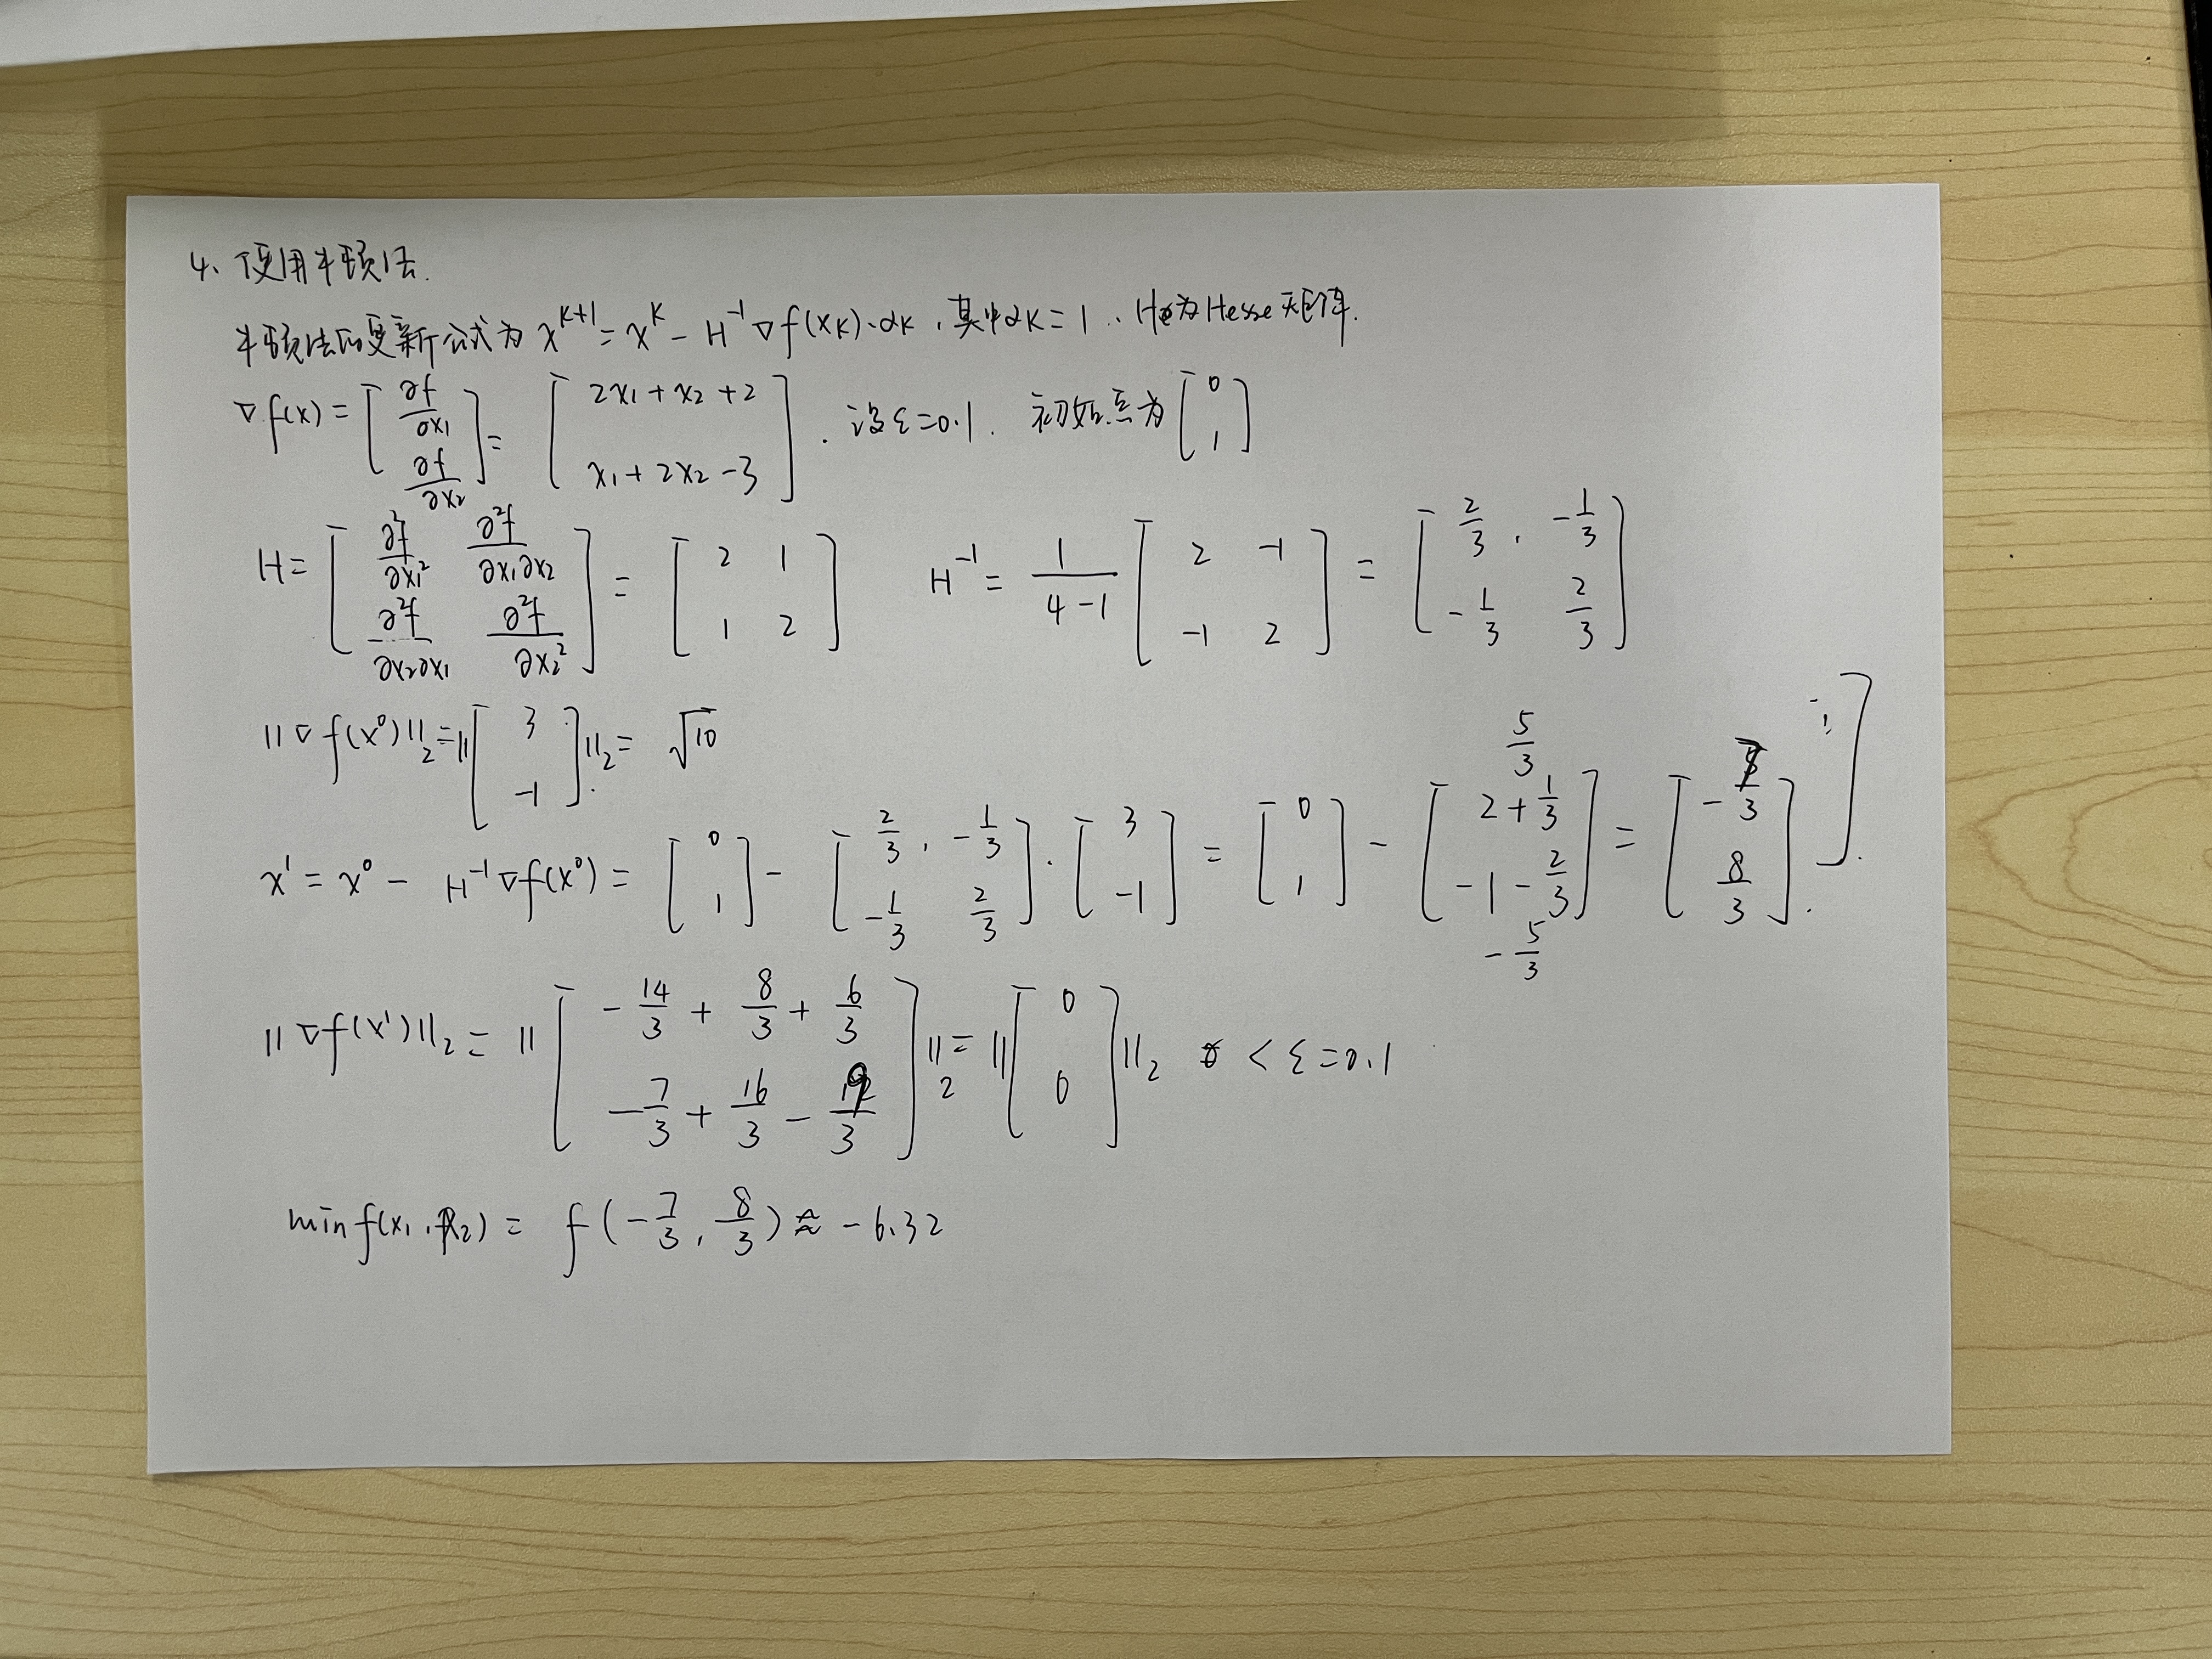 4、使用牛顿法.
牛顿法的更新公式为 x^{k+1} = x^k - H^{-1} ∇f(x_k)·α_k , 其中α_k = 1 . H为Hesse矩阵.
∇f(x) = [ ∂f/∂x₁ ; ∂f/∂x₂ ] = [ 2x₁ + x₂ + 2 ; x₁ + 2x₂ - 3 ] . 设ε=0.1. 初始点为 [ 0 ; 1 ]
H = [ ∂²f/∂x₁² ∂²f/∂x₁∂x₂ ; ∂²f/∂x₂∂x₁ ∂²f/∂x₂² ] = [ 2 1 ; 1 2 ] H^{-1} = 1/(4-1) [ 2 -1 ; -1 2 ] = [ 2/3 , -1/3 ; -1/3 2/3 ]
||∇f(x⁰)||₂ = || [ 3 ; -1 ] ||₂ = √10
x¹ = x⁰ - H^{-1}∇f(x⁰) = [ 0 ; 1 ] - [ 2/3 , -1/3 ; -1/3 2/3 ] · [ 3 ; -1 ] = [ 0 ; 1 ] - [ 5/3 2 + 1/3 ; -1 - 2/3 -5/3 ] = [ -7/3 ; 8/3 ] .
||∇f(x¹)||₂ = || [ -14/3 + 8/3 + 6/3 ; -7/3 + 16/3 - 9/3 ] ||₂ = || [ 0 ; 0 ] ||₂ < ε = 0.1
min f(x₁, x₂) = f(-7/3, 8/3) ≈ -6.32